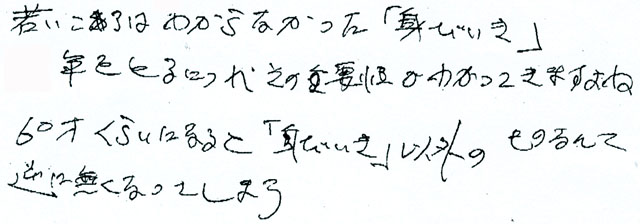 若いころはわからなかった「身びいき」
年をとるにつれその重要性がわかってきますよね
60才くらいになると「身びいき」以外のものなんて
逆に無くなってしまう